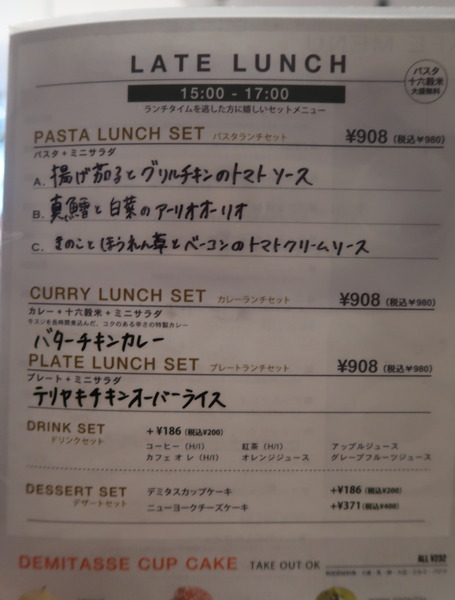 LATE LUNCH
15:00 - 17:00
ランチタイムを逃した方に嬉しいセットメニュー
パスタ
十六穀米
大盛無料
PASTA LUNCH SET パスタランチセット ¥908 (税込¥980)
パスタ+ミニサラダ
A. 揚げ茄子とグリルチキンのトマトソース
B. 真鱈と白菜のアーリオオーリオ
C. きのことほうれん草とベーコンのトマトクリームソース
CURRY LUNCH SET カレーランチセット ¥908 (税込¥980)
カレー+十六穀米+ミニサラダ
牛スジを長時間煮込んだ、コクのある辛さの特製カレー
バターチキンカレー
PLATE LUNCH SET プレートランチセット ¥908 (税込¥980)
プレート+ミニサラダ
テリヤキチキンオーバーライス
DRINK SET +¥186 (税込¥200)
ドリンクセット コーヒー (H/I) 紅茶 (H/I) アップルジュース
カフェオレ (H/I) オレンジジュース グレープフルーツジュース
DESSERT SET デミタスカップケーキ +¥186 (税込¥200)
デザートセット ニューヨークチーズケーキ +¥371 (税込¥400)
DEMITASSE CUP CAKE TAKE OUT OK ALL ¥232